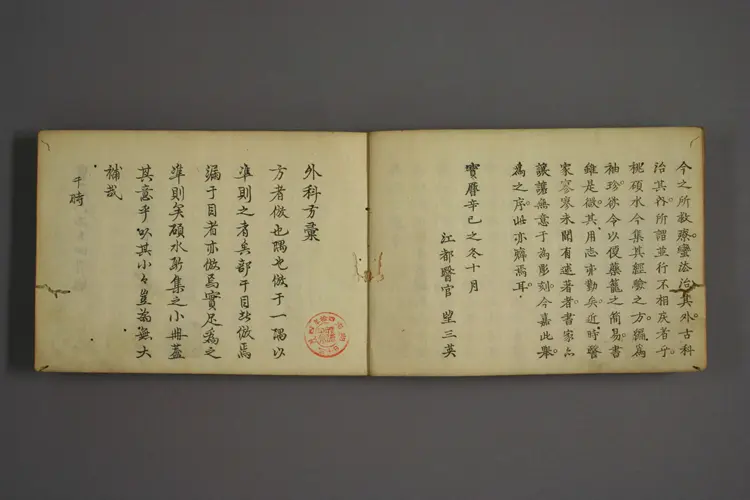 今之所教療蠻法治其外。古科
治其內。所謂並行不相戾者乎。
桃碩水今集其經驗之方。編為
袖珍。欲令以便藥籠之簡易。書
雖是微。其用志亦勤矣。近時醫
家寥寥未聞有述著者。書家亦
讓讓無意于為彫刻。今嘉此舉。
為之序。此亦癖焉耳。
寶曆辛巳之冬十月
江都醫官 望三英
外科方彙
方者倣也隅也倣于一隅以
準則之者矣部于目皆倣焉
漏于目者亦倣焉實足為之
準則矣碩水所集之小冊蓋
其意乎以其小々豈為無大
補哉
于時